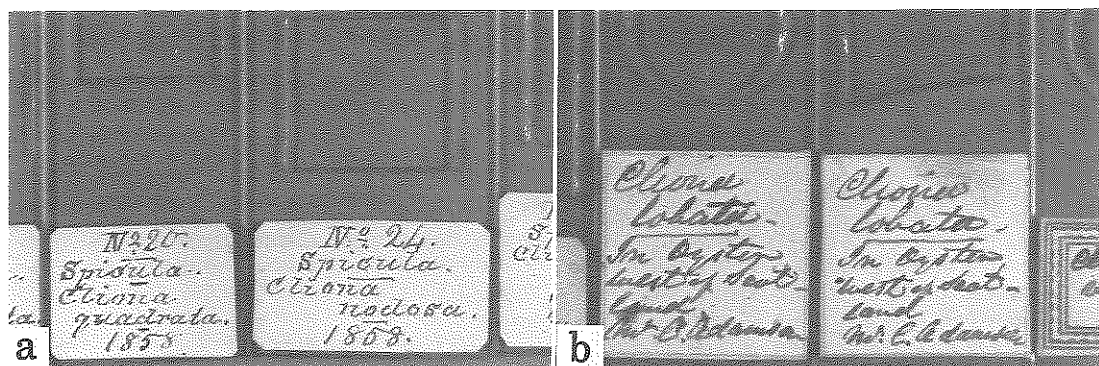 Spicula.
Cliona
quadrata.
1858
Nº 24.
Spicula.
Cliona
nodosa.
1858.
a
Cliona
lobata.
In Oyster
West of Scot-
land
Mr. C. Adamson
Cliona
lobata.
In Oyster
West of Scot-
land
Mr. C. Adamson
b